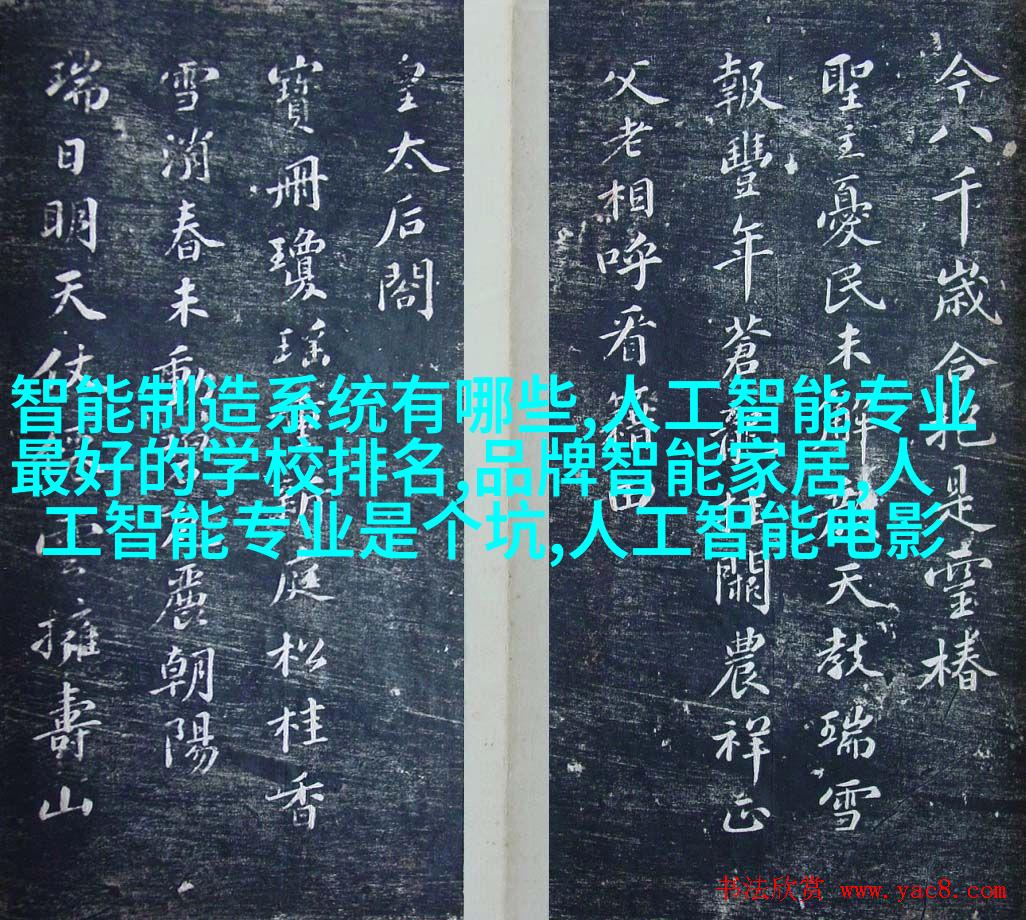 今八千歳合抱是靈椿
聖主憂民未解天教瑞雪
報豐年蒼闕農祥正
父老相呼看籍田
皇太后閣
寶冊瓊瑤重庭松桂香
雪消春未動麗朝陽
瑞日明天仗雲擁壽山
智能制造系统有哪些,人工智能专业
最好的学校排名,品牌智能家居,人
工智能专业是个坑,人工智能电影
书法欣赏 www.yac8.com